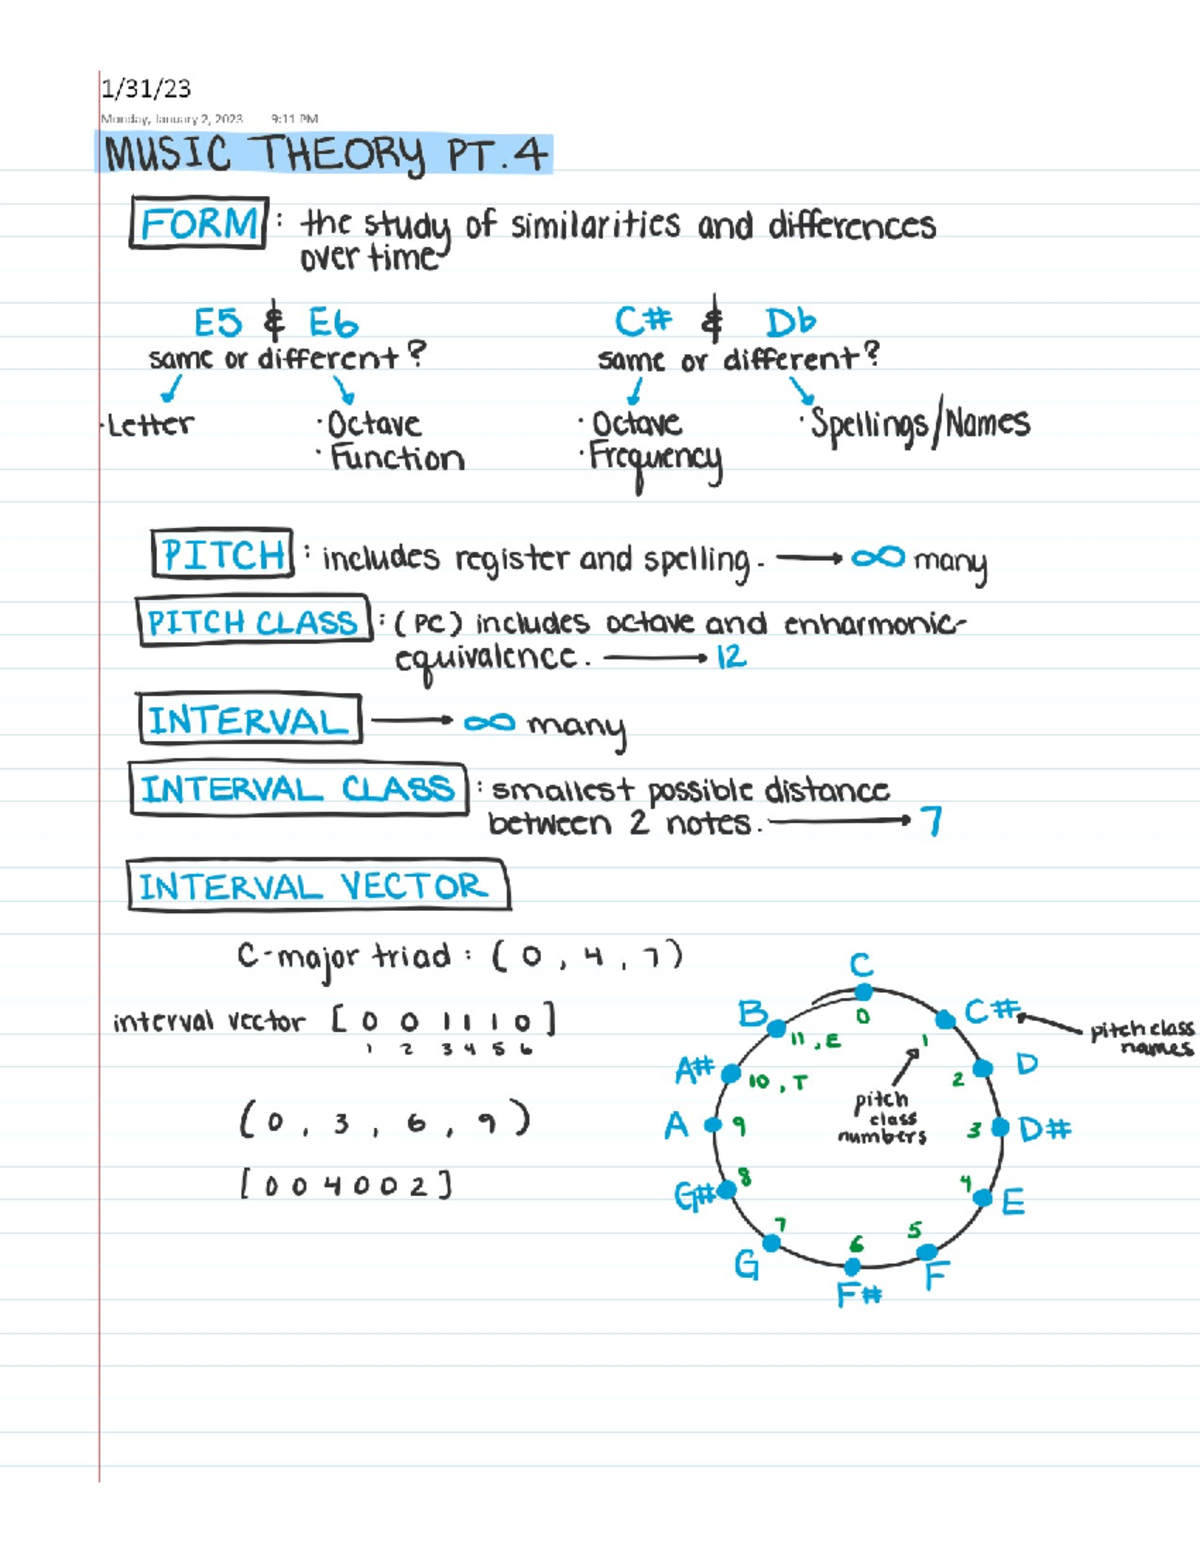 1/31/23
Monday, January 2, 2023 9:11 PM
MUSIC THEORY PT.4
FORM : the study of similarities and differences
over time
E5 & E6 C# & Db
same or different? same or different?
·Letter ·Octave ·Octave ·Spellings/Names
·Function ·Frequency
PITCH : includes register and spelling. → ∞ many
PITCH CLASS : (PC) includes octave and enharmonic-
equivalence. → 12
INTERVAL → ∞ many
INTERVAL CLASS : smallest possible distance
between 2 notes. → 7
INTERVAL VECTOR
C-major triad : (0, 4, 7)
interval vector [0 0 1 1 1 0]
1 2 3 4 5 6
(0, 3, 6, 9)
[0 0 4 0 0 2]
C
0
C#
1
pitch class
names
D
2
D#
3
E
4
F
5
F#
6
G
7
G#
8
A
9
A#
10, T
B
11, E
pitch
class
numbers